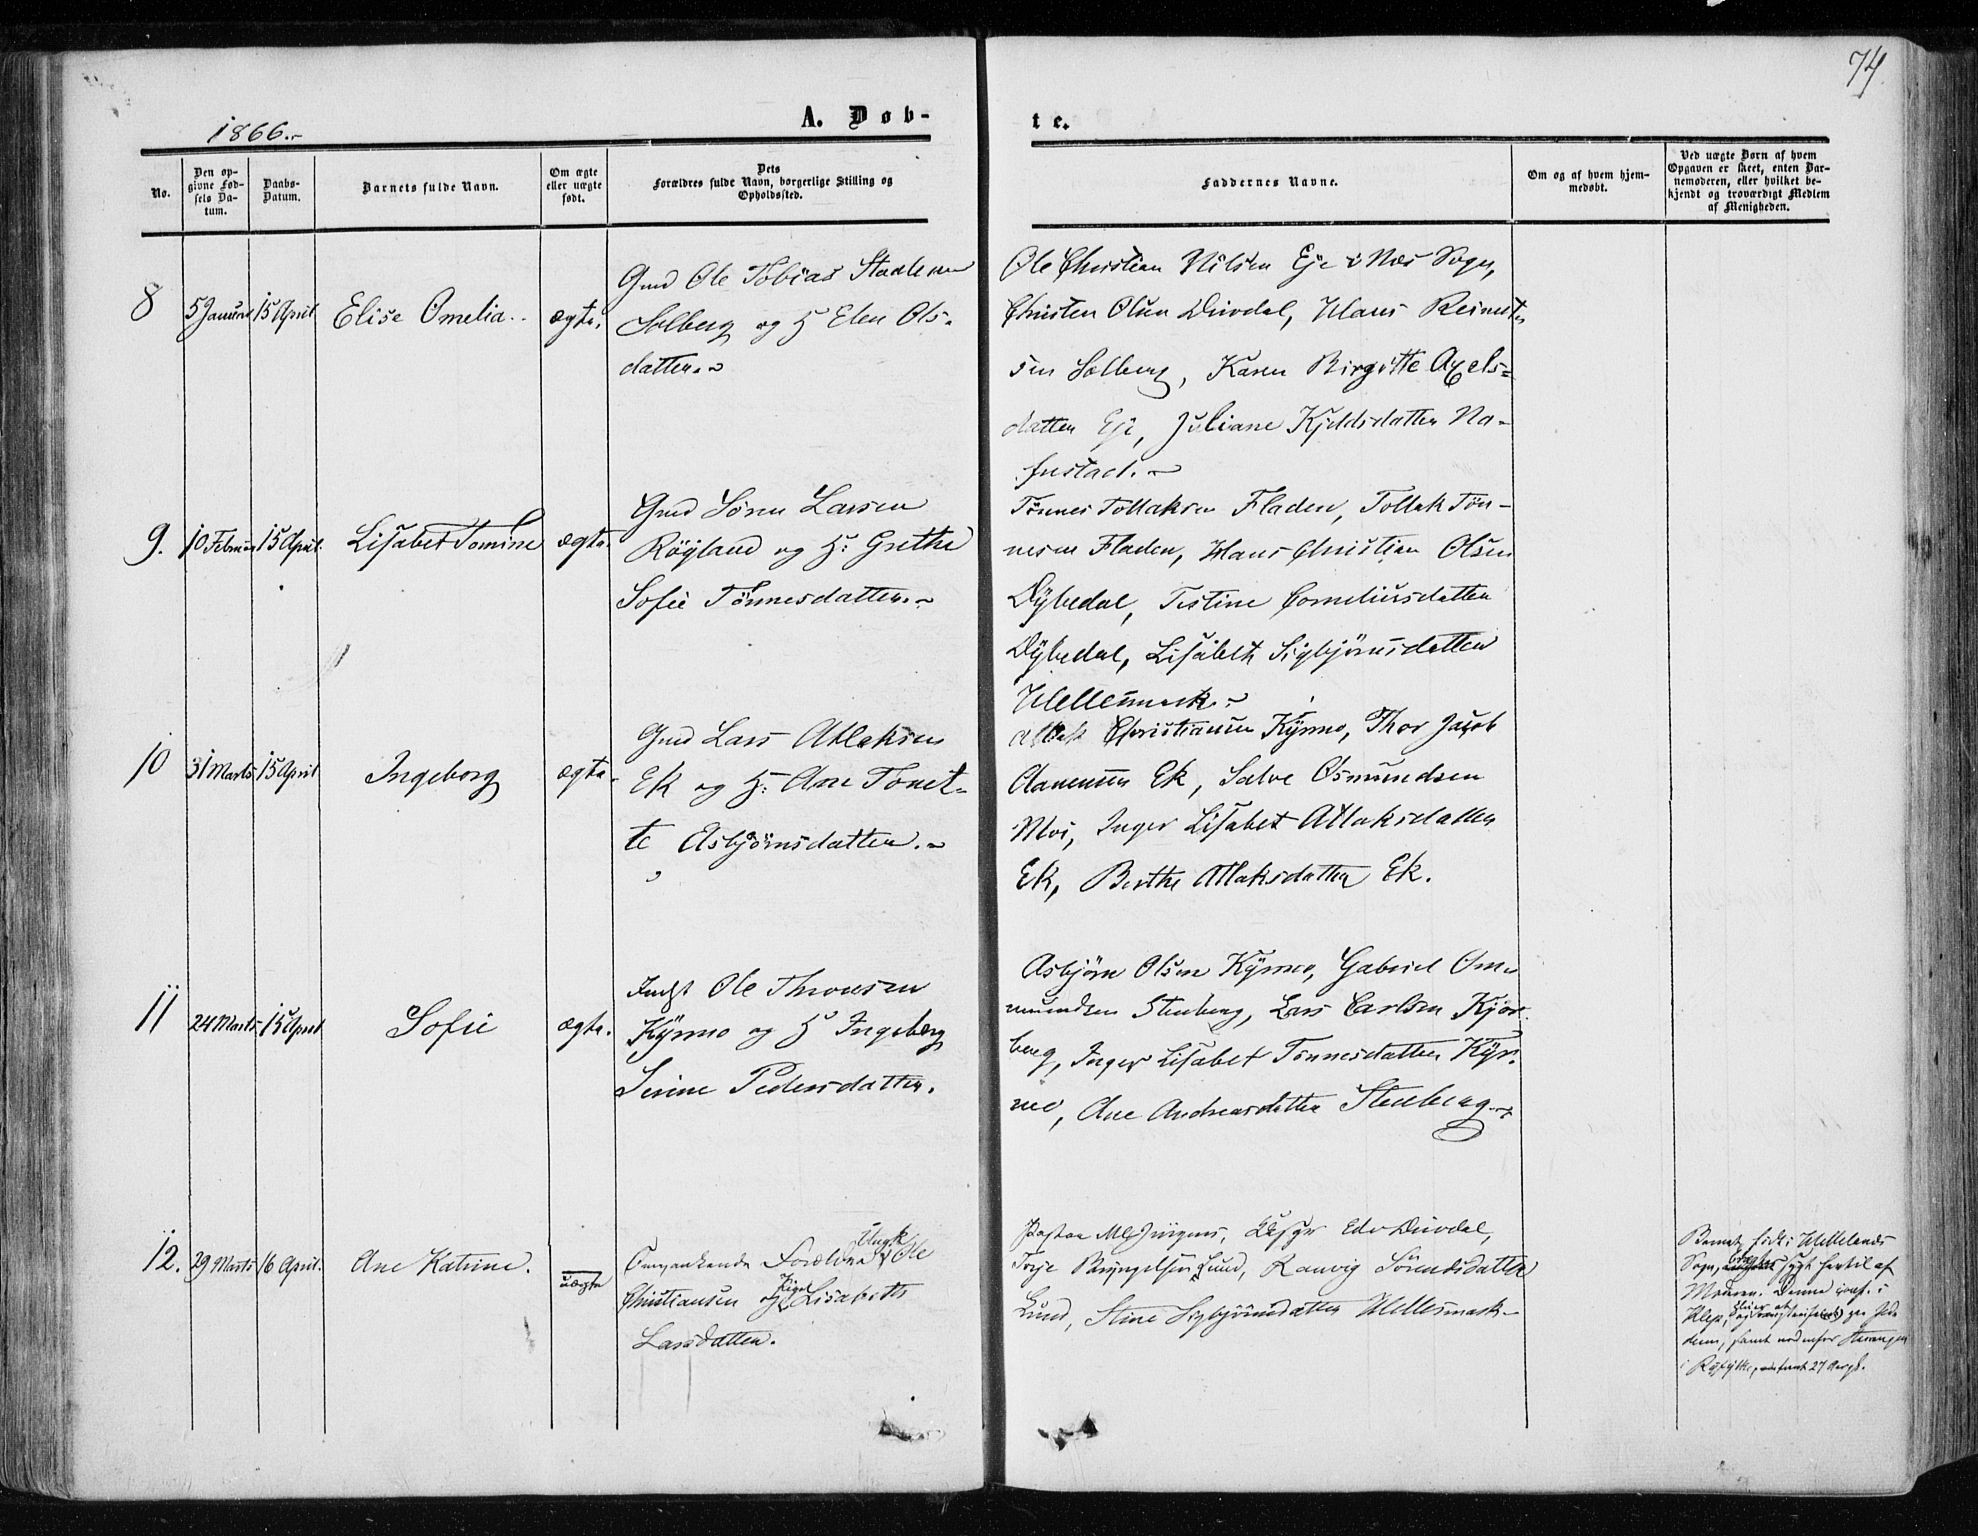 74.
1866.
A. Døb-
te.
No.
Den op-
givne Fød-
sels Da-
tum.
Daabs-
Datum.
Barnets fulde Navn.
Om ægte
eller uægte
født.
Dets
Forældres fulde Navn, borgerlige Stilling og
Opholdssted.
Faddernes Navne.
Om og af hvem hjem-
medøbt.
Ved uægte Børn af hvem
Opgaven er skeet, enten Bar-
nemoderen, eller hvilket be-
kjendt og troværdigt Medlem
af Menigheden.
8
5 Januar
15 April
Elise Omelia.
ægte.
Gmd Ole Tobias
Solberg og H Elen Ols-
datter.
Ole Christian Nilsen Eje i Næs Sogn,
Christen Olsen Duvdal, Hans Reinert-
sen Solberg, Karen Birgitte Axels-
datter Eje, Juliane Kjeldsdatter Na-
fustad.
9.
10 Februar
15 April.
Lisabet Tomine
ægte
Gmd Sören Larsen
Röyland og H: Grethe
Sofie Tönnesdatter.
Tönnes Tollaksen Fladen, Tollak Tøn-
nesen Fladen, Hans Christian Olsen
Dybedal, Testine Corneliusdatter
Dybedal, Lisabeth Sigbjörnsdatter
Hellesmark.
10
31 Marts
15 April
Ingeborg
ægte
Gmd Lars Atlaksen
Ek og H: Ane Tonet-
te Asbjörnsdatter.
Atlak Christiansen Kymo, Thor Jacob
Aanensen Ek, Salve Osmundsen
Moi, Inger Lisabet Atlaksdatter
Ek, Berthe Atlaksdatter Ek.
11
24 Marts
15 April
Sofie
ægte.
Indst Ole Thronsen
Kymo og H Ingeborg
Serine Pedersdatter.
Asbjörn Olsen Kymo, Gabriel Om-
mundsen Stenberg, Lars Carlsen Kjör-
berg, Inger Lisabet Tønnesdatter Kyr-
mo, Ane Andreasdatter Stenberg.
12.
29 Marts
16 April.
Ane Katrine.
uægte
Omvankende Forældre Ungk Ole
Christiansen og Pigen Lisabeth
Larsdatter.
Duvdal,
Torje Bryngelsen Lund, Ranvig Sörensdatter
Lund, Stine Sigbjörnsdatter Hellesmark
Barnet født i Hellelands
Sogn, sygt hertil af
Moderen. Denne conf. i
Klep,